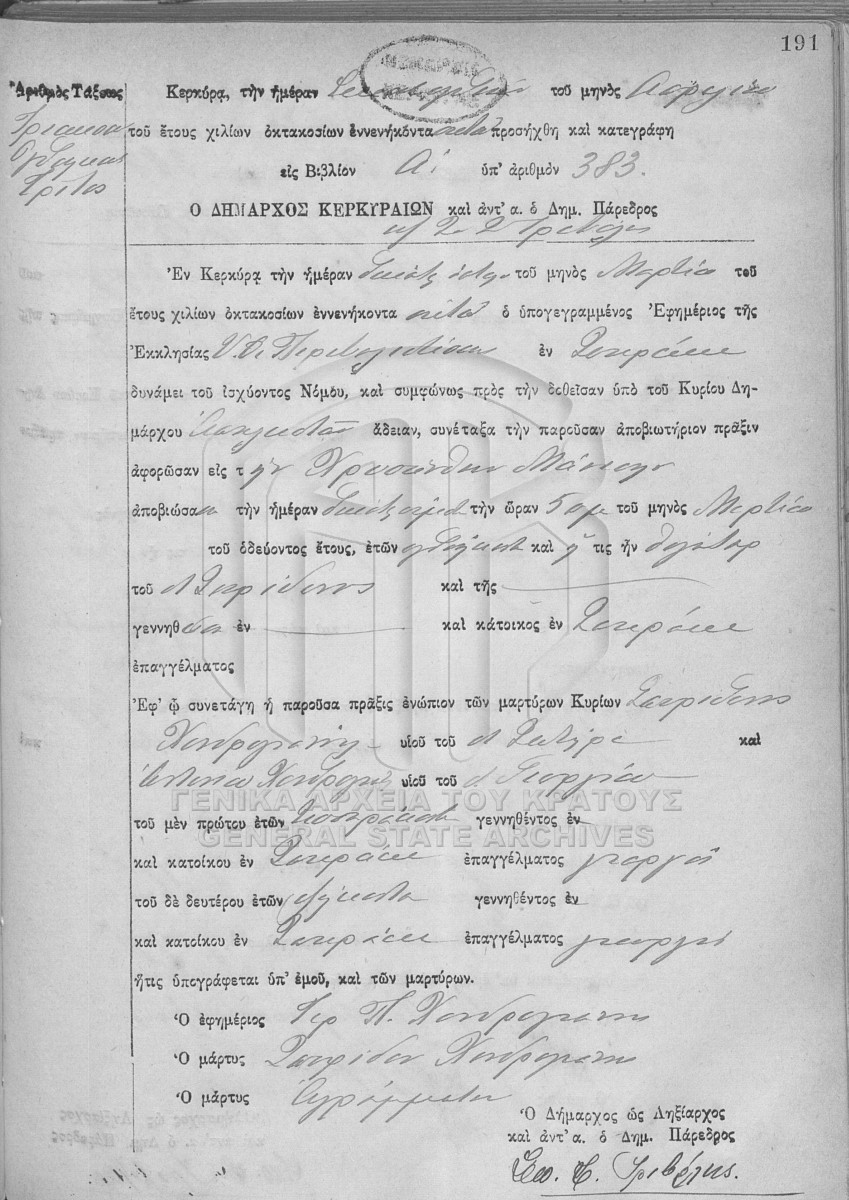 191
Ἀριθμὸς Τάξεως
Τριακόσια
Ὀγδοήκοντα
Τρίτος
Κερκύρα, τὴν ἡμέραν τοῦ μηνὸς Ἀπριλίου
τοῦ ἔτους χιλίων ὀκτακοσίων ἐννενήκοντα ὀκτὼ προσήχθη καὶ κατεγράφη
εἰς Βιβλίον Α΄. ὑπ' ἀριθμὸν 383.
Ὁ ΔΗΜΑΡΧΟΣ ΚΕΡΚΥΡΑΙΩΝ καὶ ἀντ' α. ὁ Δημ. Πάρεδρος
Ἐν Κερκύρᾳ τὴν ἡμέραν τοῦ μηνὸς Μαρτίου τοῦ
ἔτους χιλίων ὀκτακοσίων ἐννενήκοντα ὀκτὼ ὁ ὑπογεγραμμένος Ἐφημέριος τῆς
Ἐκκλησίας Υ. Θ. ἐν Σωκράκι
δυνάμει τοῦ ἰσχύοντος Νόμου, καὶ συμφώνως πρὸς τὴν δοθεῖσαν ὑπὸ τοῦ Κυρίου Δη-
μάρχου ἄδειαν, συνέταξα τὴν παροῦσαν ἀποβιωτήριον πρᾶξιν
ἀφορῶσαν εἰς τὴν Χρυσάνθην
ἀποβιώσασα τὴν ἡμέραν τὴν ὥραν 5 πμ τοῦ μηνὸς Μαρτίου
τοῦ ὁδεύοντος ἔτους, ἐτῶν ὀγδοήκοντα καὶ ἥ τις ἦν θυγάτηρ
τοῦ Σπυρίδωνος καὶ τῆς
γεννηθεῖσα ἐν καὶ κάτοικος ἐν Σωκράκι
ἐπαγγέλματος
Ἐφ' ᾧ συνετάγη ἡ παροῦσα πρᾶξις ἐνώπιον τῶν μαρτύρων Κυρίων Σπυρίδωνος
Χονδρογιάννη υἱοῦ τοῦ Σωτήρη καὶ
Ἀντωνίου Χονδρογιάννη υἱοῦ τοῦ Γεωργίου
ΓΕΝΙΚΑ ΑΡΧΕΙΑ ΤΟΥ ΚΡΑΤΟΥΣ
τοῦ μὲν πρώτου ἐτῶν γεννηθέντος ἐν
GENERAL STATE ARCHIVES
καὶ κατοίκου ἐν Σωκράκι ἐπαγγέλματος γεωργοῦ
τοῦ δὲ δευτέρου ἐτῶν γεννηθέντος ἐν
καὶ κατοίκου ἐν Σωκράκι ἐπαγγέλματος γεωργοῦ
ἥτις ὑπογράφεται ὑπ' ἐμοῦ, καὶ τῶν μαρτύρων.
Ὁ ἐφημέριος Ἱερ Π. Χονδρογιάννης
Ὁ μάρτυς Σπυρίδων Χονδρογιάννης
Ὁ μάρτυς Ἀγράμματος
Ὁ Δήμαρχος ὡς Ληξίαρχος
καὶ ἀντ' α. ὁ Δημ. Πάρεδρος